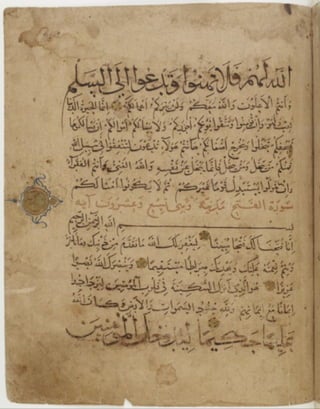 الله لهم فلا تهنوا وتدعوا إلى السلم
وأنتم الأعلون والله معكم ولن يتركم أعمالكم إنما الحيوة الدنيا
لعب ولهو وإن تؤمنوا وتتقوا يؤتكم أجوركم ولا يسألكم أموالكم إن يسألكموها
فيحفكم تبخلوا ويخرج أضغانكم هأنتم هؤلاء تدعون لتنفقوا في سبيل الله
فمنكم من يبخل ومن يبخل فإنما يبخل عن نفسه والله الغني وأنتم الفقراء
وإن تتولوا يستبدل قوما غيركم ثم لا يكونوا أمثالكم
سورة الفتح مدنية وهي تسع وعشرون آية
بسم الله الرحمن الرحيم
إنا فتحنا لك فتحا مبينا ليغفر لك الله ما تقدم من ذنبك وما تأخر
ويتم نعمته عليك ويهديك صراطا مستقيما وينصرك الله نصرا
عزيزا هو الذي أنزل السكينة في قلوب المؤمنين ليزدادوا
إيمانا مع إيمانهم ولله جنود السموات والأرض وكان الله
عليما حكيما ليدخل المؤمنين